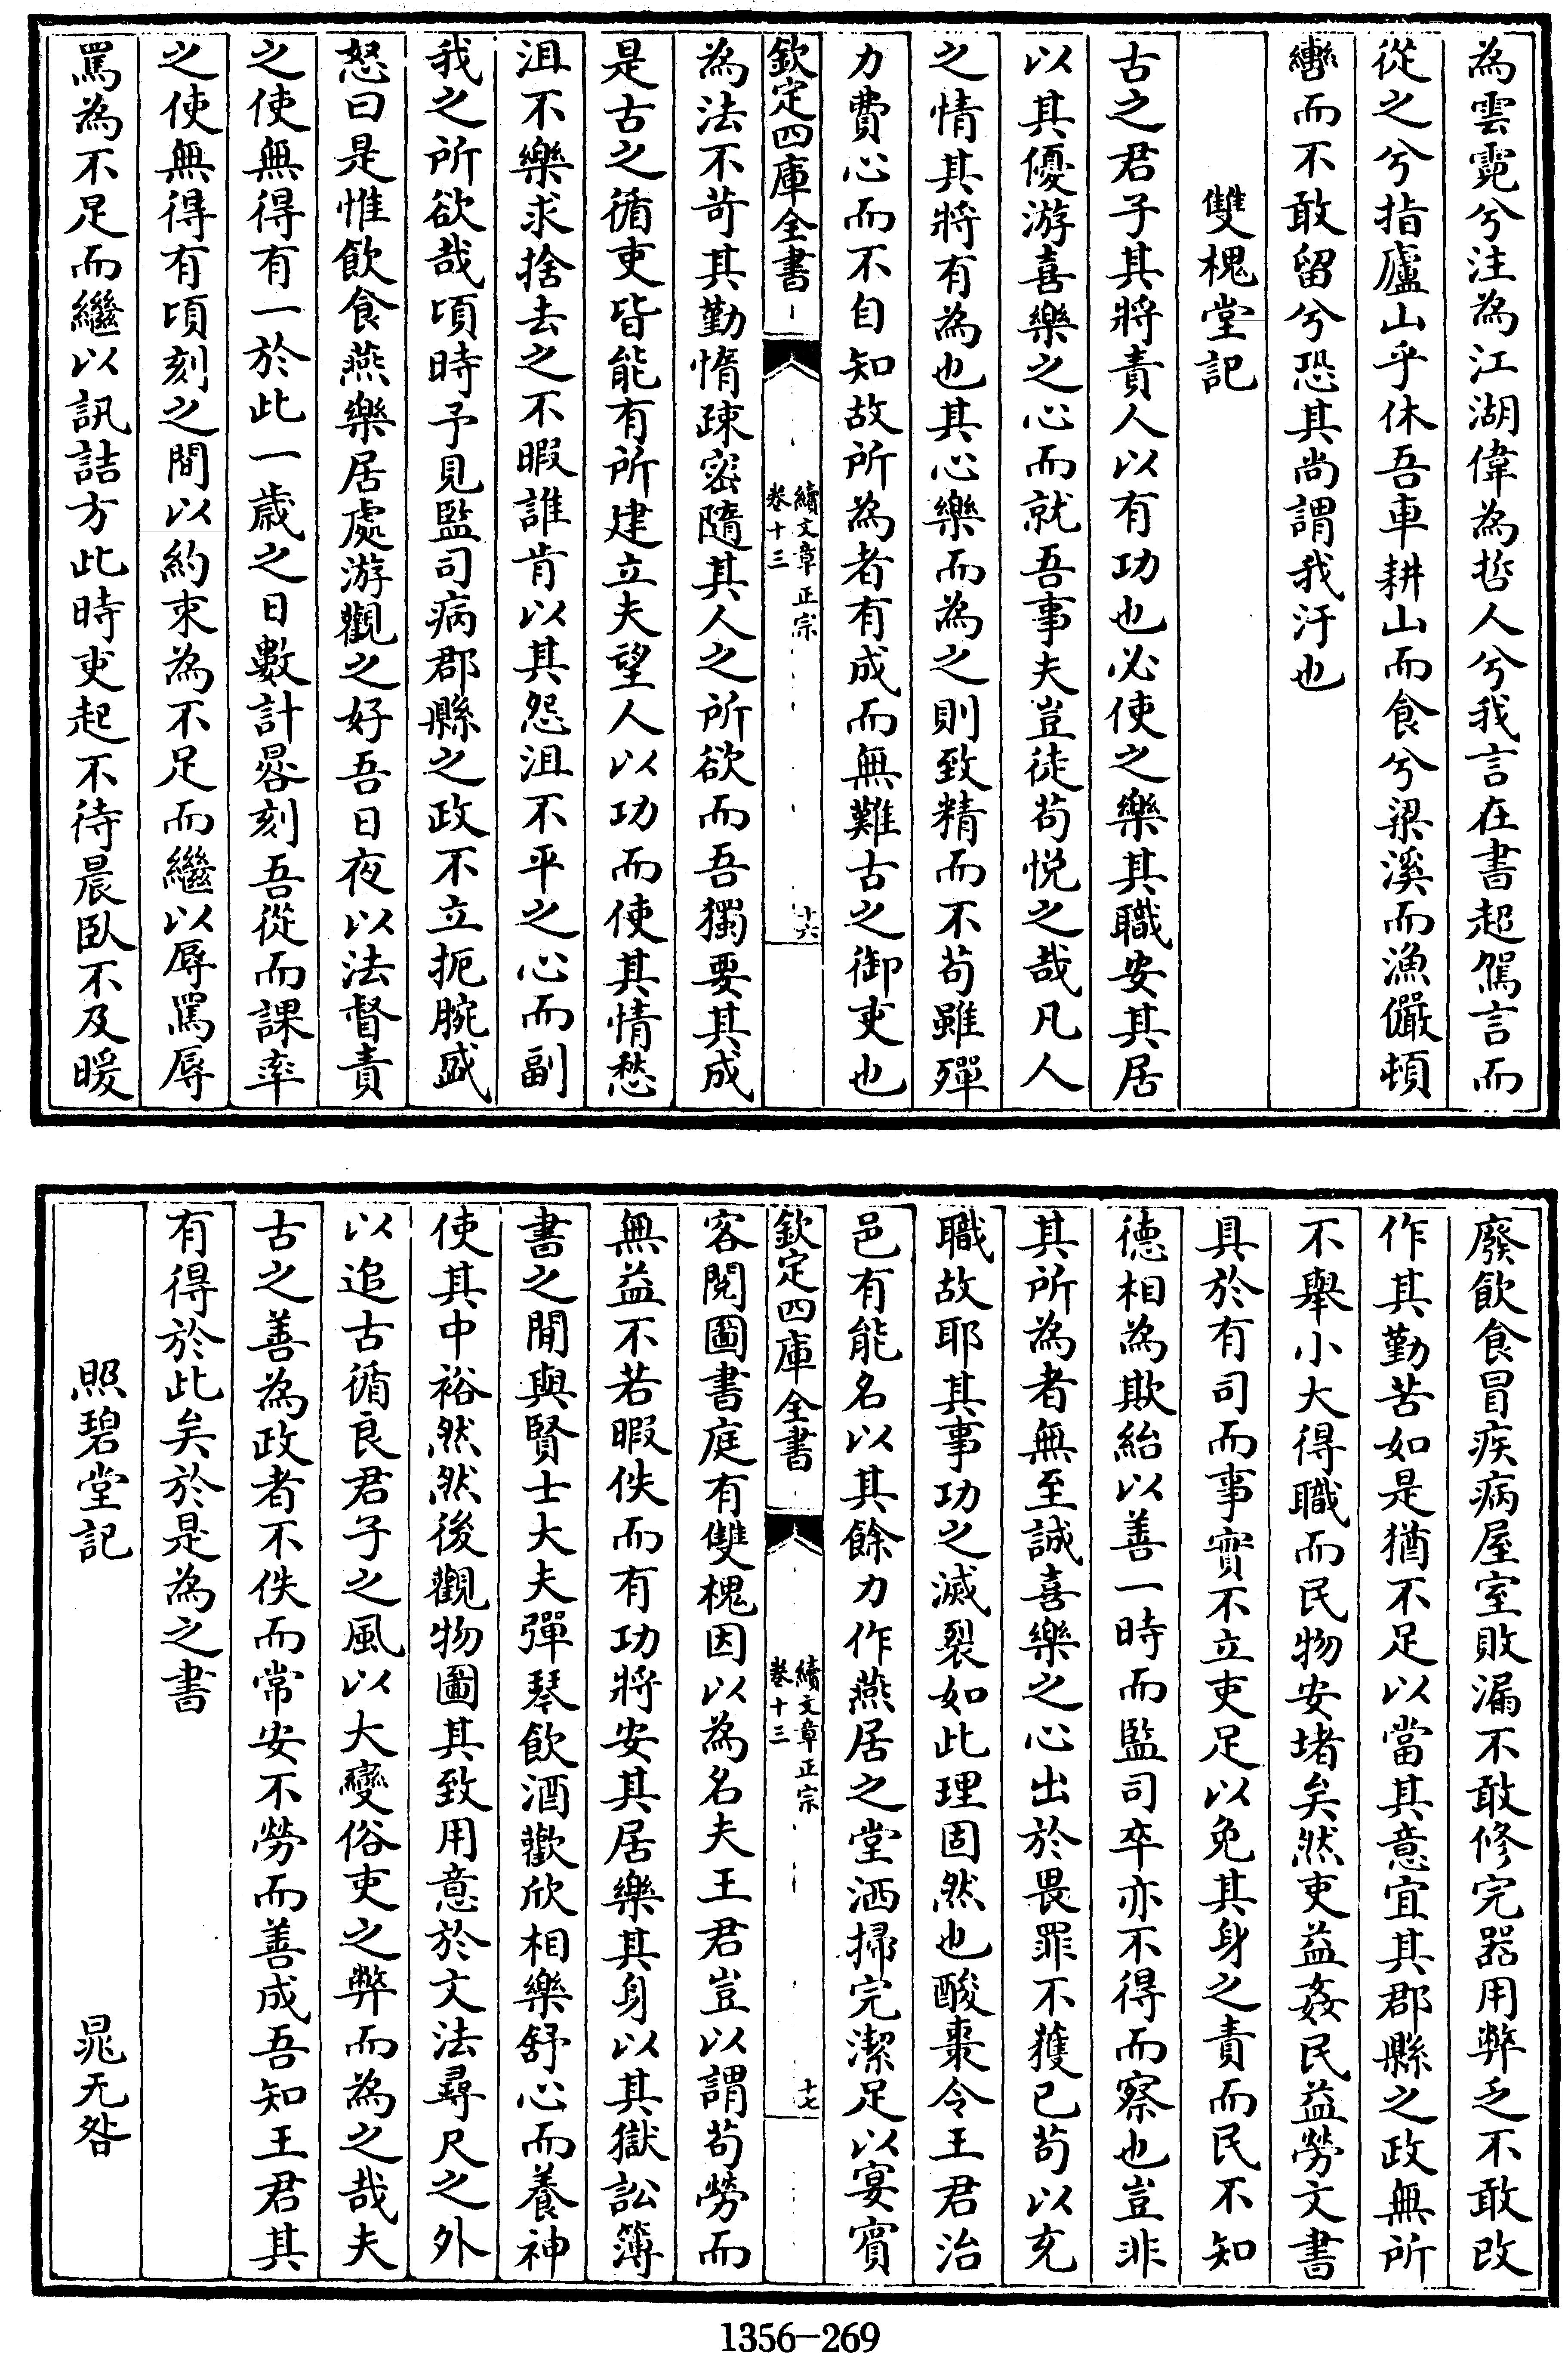 為雲霓兮注為江湖偉為哲人兮我言在書超駕言而
從之兮指廬山乎休吾車耕山而食兮梁溪而漁儼頓
轡而不敢留兮恐其尚謂我汙也
雙槐堂記
古之君子其將責人以有功也必使之樂其職安其居
以其優游喜樂之心而就吾事夫豈徒苟悦之哉凡人
之情其將有為也其心樂而為之則致精而不苟雖殫
力費心而不自知故所為者有成而無難古之御吏也
欽定四庫全書
續文章正宗
卷十三
十六
為法不苛其勤惰疎密隨其人之所欲而吾獨要其成
是古之循吏皆能有所建立夫望人以功而使其情愁
沮不樂求捨去之不暇誰肯以其怨沮不平之心而副
我之所欲哉頃時予見監司病郡縣之政不立扼腕盛
怒曰是惟飲食燕樂居處游觀之好吾日夜以法督責
之使無得有一於此一歳之日數計晷刻吾從而課率
之使無得有頃刻之間以約束為不足而繼以辱罵辱
罵為不足而繼以訊詰方此時吏起不待晨臥不及暖
廢飲食冒疾病屋室敗漏不敢修完器用弊乏不敢改
作其勤苦如是猶不足以當其意宜其郡縣之政無所
不舉小大得職而民物安堵矣然吏益姦民益勞文書
具於有司而事實不立吏足以免其身之責而民不知
德相為欺紿以善一時而監司卒亦不得而察也豈非
其所為者無至誠喜樂之心出於畏罪不獲已苟以充
職故耶其事功之滅裂如此理固然也酸棗令王君治
邑有能名以其餘力作燕居之堂洒掃完潔足以宴賓
欽定四庫全書
續文章正宗
卷十三
十七
客閱圖書庭有雙槐因以為名夫王君豈以謂苟勞而
無益不若暇佚而有功將安其居樂其身以其獄訟簿
書之間與賢士大夫彈琴飲酒歡欣相樂舒心而養神
使其中裕然然後觀物圖其致用意於文法尋尺之外
以追古循良君子之風以大變俗吏之弊而為之哉夫
古之善為政者不佚而常安不勞而善成吾知王君其
有得於此矣於是為之書
照碧堂記 晁无咎
1356-269